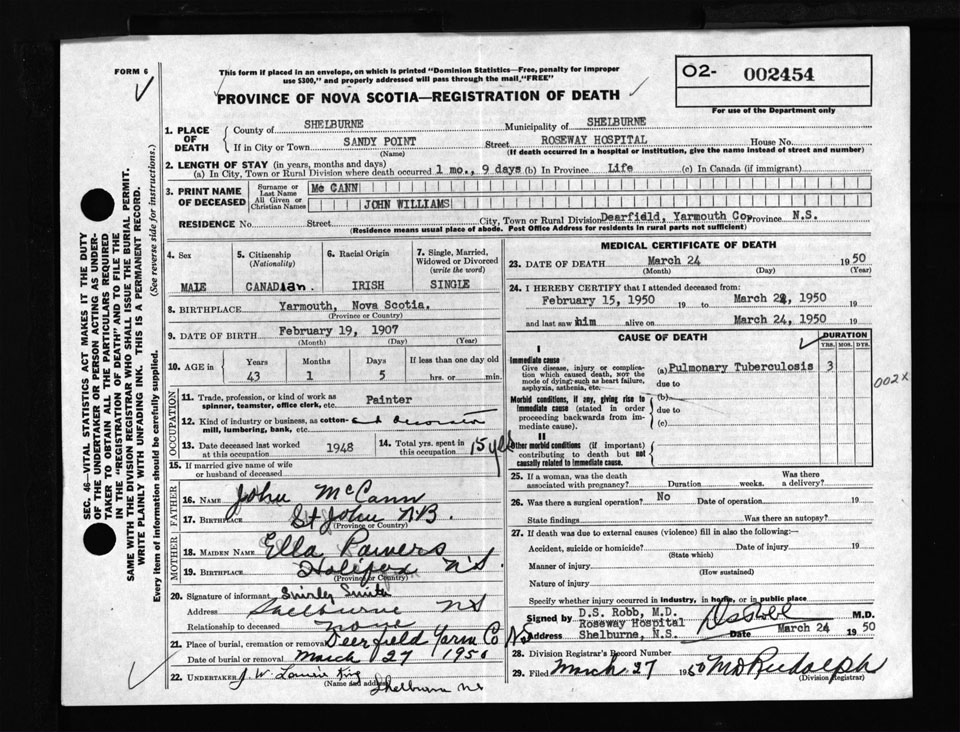 FORM 6
This form if placed in an envelope, on which is printed "Dominion Statistics—Free, penalty for improper
use $300," and properly addressed will pass through the mail "FREE"
PROVINCE OF NOVA SCOTIA—REGISTRATION OF DEATH
O2- 002454
For use of the Department only
1. PLACE OF DEATH
County of SHELBURNE Municipality of SHELBURNE
If in City or Town SANDY POINT Street ROSEWAY HOSPITAL House No.
(Name) (If death occurred in a hospital or institution, give the name instead of street and number)
2. LENGTH OF STAY (in years, months and days)
(a) In City, Town or Rural Division where death occurred 1 mo., 9 days (b) In Province Life (c) In Canada (if immigrant)
3. PRINT NAME OF DECEASED
Surname or Last Name Mc CANN
All Given or Christian Names JOHN WILLIAMS
RESIDENCE No. Street City, Town or Rural Division Dearfield, Yarmouth Co. Province N.S.
(Residence means usual place of abode. Post Office Address for residents in rural parts not sufficient)
4. Sex MALE
5. Citizenship (Nationality) CANADian.
6. Racial Origin IRISH
7. Single, Married, Widowed or Divorced (write the word) SINGLE
8. BIRTHPLACE Yarmouth, Nova Scotia.
(Province or Country)
9. DATE OF BIRTH February 19, 1907
(Month) (Day) (Year)
10. AGE in Years Months Days If less than one day old
43 1 5 hrs. or min.
OCCUPATION
11. Trade, profession, or kind of work as Painter
spinner, teamster, office clerk, etc.
12. Kind of industry or business, as cotton- and Decorator
mill, lumbering, bank, etc.
13. Date deceased last worked at this occupation 1948
14. Total yrs. spent in this occupation 15 yrs
15. If married give name of wife
or husband of deceased
FATHER
16. NAME John McCann
17. BIRTHPLACE St John N.B.
(Province or Country)
MOTHER
18. MAIDEN NAME Ella Powers
19. BIRTHPLACE Halifax N.S.
(Province or Country)
20. Signature of informant Shirley Smith
Address Shelburne NS
Relationship to deceased none
21. Place of burial, cremation or removal Deerfield Yarm Co NS
Date of burial or removal March 27 1950
22. UNDERTAKER J W King
(Name and address) Shelburne NS
MEDICAL CERTIFICATE OF DEATH
23. DATE OF DEATH March 24 1950
(Month) (Day) (Year)
24. I HEREBY CERTIFY that I attended deceased from:
February 15, 1950 19 to March 1950 19
and last saw him alive on March 24, 1950 19
CAUSE OF DEATH DURATION
YRS. MOS. DYS.
I
Immediate cause
Give disease, injury or complication which caused death, NOT the mode of dying; such as heart failure, asphyxia, asthenia, etc.
(a) Pulmonary Tuberculosis 3
due to
002 X
Morbid conditions, if any, giving rise to immediate cause (stated in order proceeding backwards from immediate cause).
(b)
due to
(c)
II
Other morbid conditions (if important) contributing to death but not causally related to immediate cause.
25. If a woman, was the death Was there
associated with pregnancy? Duration weeks. a delivery?
26. Was there a surgical operation? No Date of operation 19
State findings Was there an autopsy?
27. If death was due to external causes (violence) fill in also the following:—
Accident, suicide or homicide? Date of injury 19
(State which)
Manner of injury
(How sustained)
Nature of injury
Specify whether injury occurred in industry, in home, or in public place
Signed by D.S. Robb, M.D. DS Robb M.D.
Roseway Hospital
Address Shelburne, N.S. Date March 24 1950
28. Division Registrar's Record Number
29. Filed March 27 1950 M D Rudolph
(Division Registrar)
SEC. 46—VITAL STATISTICS ACT MAKES IT THE DUTY
OF THE UNDERTAKER OR PERSON ACTING AS UNDER-
TAKER TO OBTAIN ALL THE PARTICULARS REQUIRED
IN THE "REGISTRATION OF DEATH" AND TO FILE THE
SAME WITH THE DIVISION REGISTRAR WHO SHALL ISSUE THE BURIAL PERMIT.
WRITE PLAINLY WITH UNFADING INK. THIS IS A PERMANENT RECORD.
Every item of information should be carefully supplied. (See reverse side for instructions.)